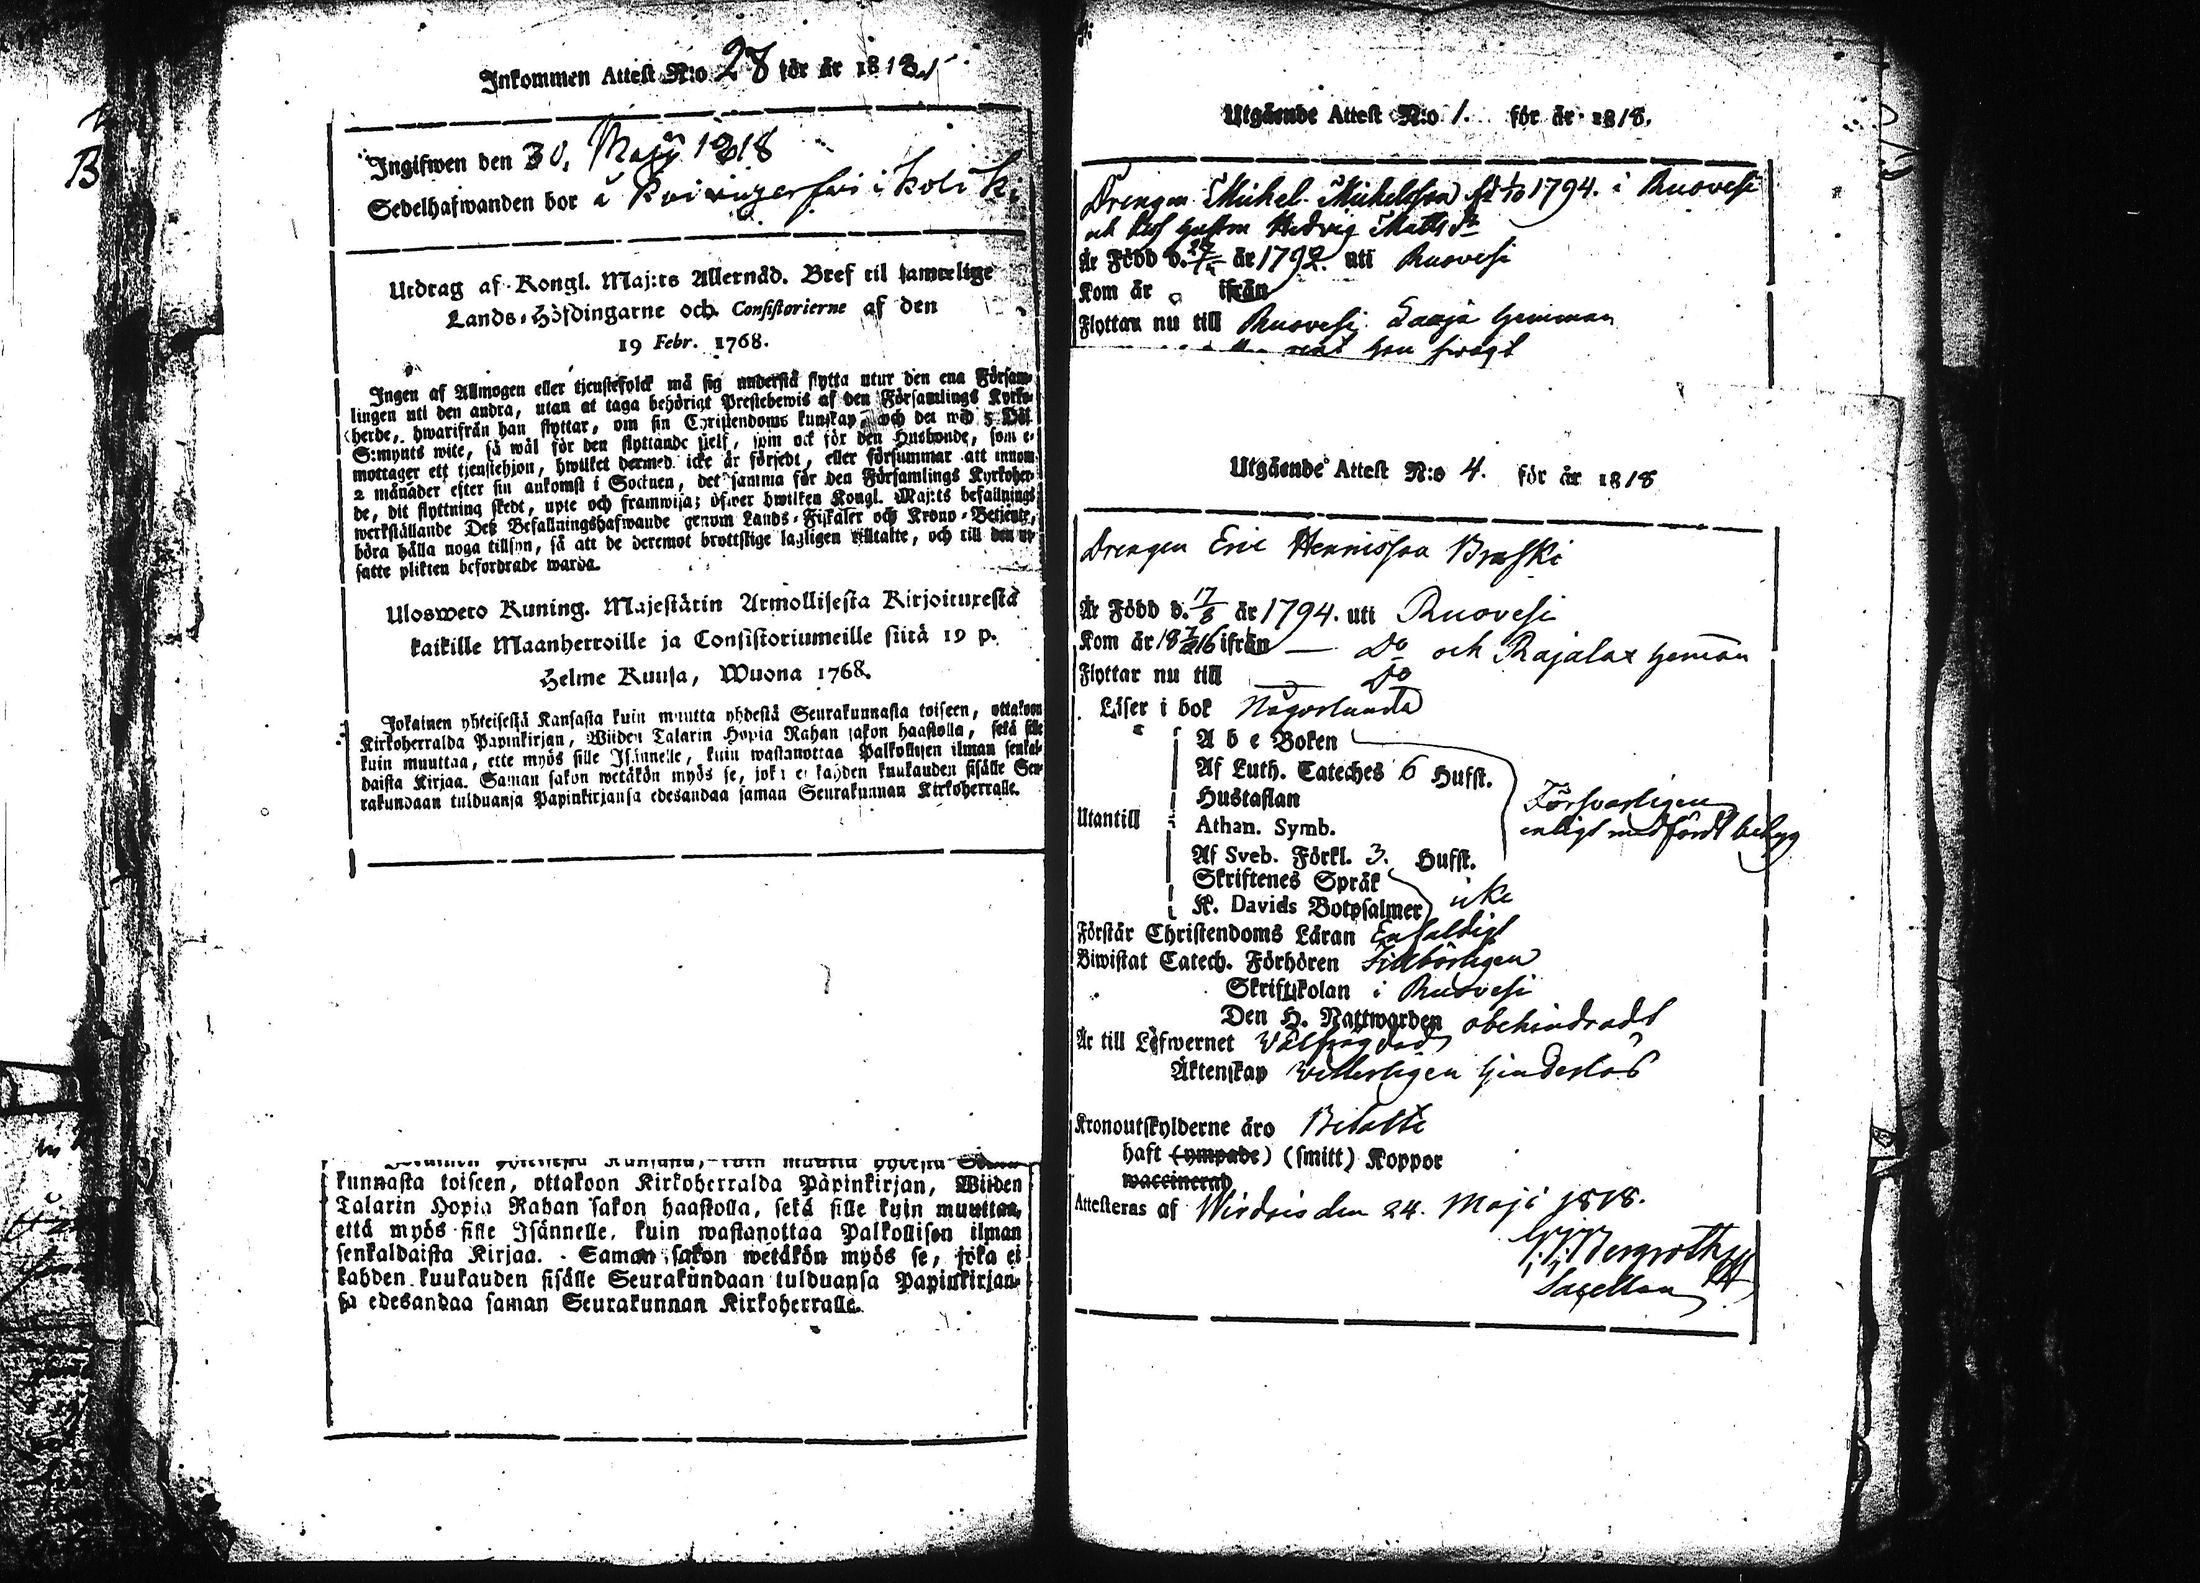 Inkommen Attest N:o 28 för år 1818
Ingifwen den 30. Maji 1818
Sedelhafwanden bor å i
Utdrag af Kongl. Maj:ts Allernåd. Bref til samtelige
Lands-Höfdingarne och Consistorierne af den
19 Febr. 1768.
Ingen af Allmogen eller tjenstefolck må sig understå flytta utur den ena Försam-
lingen uti den andra, utan at taga behörigt Prestebewis af den Församlings Kyrko-
herde, hwarifrån han flyttar, om sin Christendoms kunskap, och det wid 5 Dal.
S:mynts wite, så wäl för den flyttande sjelf, som ock för den Husbonde, som e-
mottager ett tjenstehjon, hwilket dermed icke är försedt, eller försummar att innom
2 månader efter sin ankomst i Socknen, det samma för den Församlings Kyrkoher-
de, dit flyttning skedt, upte och framwija; öfwer hwilken Kongl. Maj:ts befallnings
werkställande Deß Befallningshafwande genom Lands-Fiskaler och Krono-Betjente,
böra hålla noga tillsyn, så att de deremot brottslige lagligen tilltalte, och till den ut-
satte plikten befordrade warda.
Ulosweto Kuning. Majestätin Armollisesta Kirjoituxesta
kaikille Maanherroille ja Consistoriumeille siitä 19 p.
Helme Kuusa, Wuona 1768.
Jokainen yhteisestä Kansasta kuin muutta yhdestä Seurakunnasta toiseen, ottakoon
Kirkoherralda Papinkirjan, Wiiden Talarin Hopia Rahan sakon haastolla, sekä sille
kuin muuttaa, ette myös sille Isännelle, kuin wastanottaa Palkollisen ilman senkal-
daista Kirjaa. Saman sakon wetäkön myös se, joka ei kahden kuukauden sisälle Seu-
rakundaan tulduansa Papinkirjansa edesandaa saman Seurakunnan Kirkoherralle.
kunnasta toiseen, ottakoon Kirkoherralda Papinkirjan, Wiiden
Talarin Hopia Rahan sakon haastolla, sekä sille kuin muuttaa,
että myös sille Isännelle, kuin wastanottaa Palkollisen ilman
senkaldaista Kirjaa. Saman sakon wetäkön myös se, joka ei
kahden kuukauden sisälle Seurakundaan tulduansa Papinkirjan-
sa edesandaa saman Seurakunnan Kirkoherralle.
Utgående Attest N:o 1. för år 1818.
Drengen Michel Michelsson 1794. i Ruovesi
och dess hustru Hedvig Matts dr
Är Född d. år 1792. uti Ruovesi
Kom år ifrån
Flyttar nu till Ruovesi hemman
Utgående Attest N:o 4. för år 1818
Drengen Eric Henricsson Braski
Är Född d. 17/8 år 1794. uti Ruovesi
Kom år 1816 ifrån — Do och Rajalax heman
Flyttar nu till — Do
Läser i bok Någorlunda
A b c Boken
Af Luth. Cateches 6 Hufst.
Hustaflan
Utantill Athan. Symb.
Försvarligen
enligt medfördt betyg
Af Sveb. Förkl. 3. Hufst.
Skriftenes Språk
K. Davids Botpsalmer icke
Förstår Christendoms Läran Enfaldigt
Biwistat Catech. Förhören Tillbörligen
Skriftskolan i Ruovesi
Den H. Nattwarden obehindradt
Är till Lefwernet Välfrägdad
Äktenskap vitterligen hinderlös
Kronoutskylderne äro Betalte
haft (ympade) (smitt) Koppor
waccinerad
Attesteras af Wirdois den 24. Maji 1818.
Bergroth
Sacellan